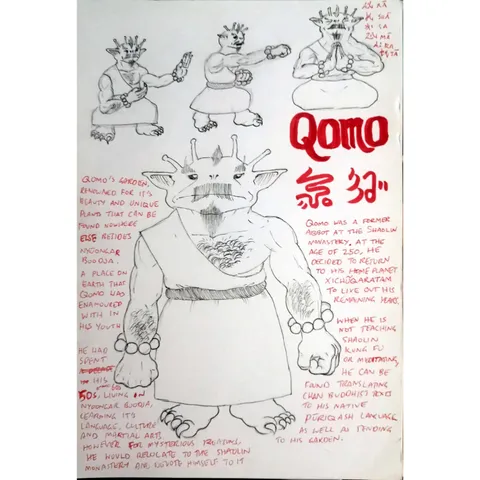 QOMO
QOMO'S GARDEN,
RENOWNED FOR IT'S
BEAUTY AND UNIQUE
PLANTS THAT CAN BE
FOUND NOWHERE
ELSE BESIDES
NYOONGAR
BOODJA.
A PLACE ON
EARTH THAT
QOMO WAS
ENAMOURED
WITH IN
HIS YOUTH
HE HAD
SPENT
HIS
50S, LIVING IN
NYOONGAR BOODJA,
LEARNING IT'S
LANGUAGE, CULTURE
AND MARTIAL ARTS
HOWEVER FOR MYSTERIOUS REASONS,
HE WOULD RELOCATE TO THE SHAOLIN
MONASTERY AND DEVOTE HIMSELF TO IT
QOMO WAS A FORMER
ABBOT AT THE SHAOLIN
MONASTERY, AT THE
AGE OF 250, HE
DECIDED TO RETURN
TO HIS HOME PLANET
TO LIVE OUT HIS
REMAINING YEARS.
WHEN HE IS
NOT TEACHING
SHAOLIN
KUNG FU
OR MEDITATING,
HE CAN BE
FOUND TRANSLATING
CHAN BUDDHIST TEXTS
TO HIS NATIVE
LANGUAGE
AS WELL AS TENDING
TO HIS GARDEN.